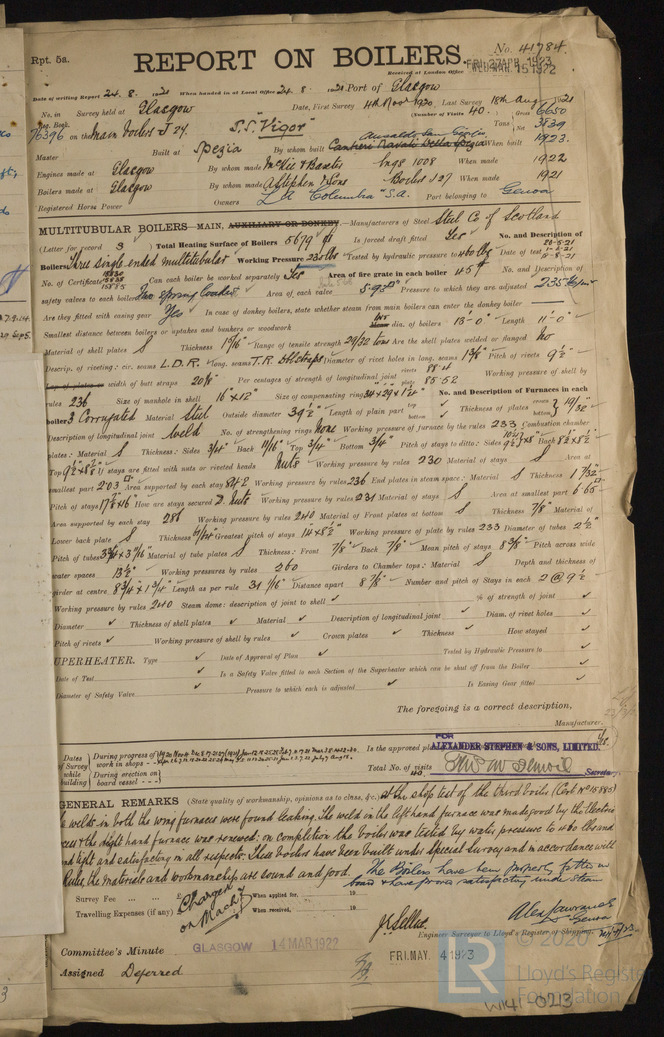 Rpt. 5a.
No. 41784
REPORT ON BOILERS.
FRI. 27 APR. 1923
Received at London Office WED. MAR. 15 1922
Date of writing Report 24. 8. 1921 When handed in at Local Office 24. 8. 1921 Port of Glasgow
No. in Survey held at Glasgow Date, First Survey 4th Novr 1920 Last Survey 18th Aug 1921
Reg. Book. (Number of Visits 40.) Gross 6650
76396 on the Main boilers J 27. S.S. "Vigor" Tons Net 3839
Master Built at Spezia By whom built Ansaldo San Giorgio Cantieri Navali Della Spezia When built 1923.
Engines made at Glasgow By whom made McKie & Baxter Engs 1008 When made 1922
Boilers made at Glasgow By whom made A Stephen & Sons Boilers J27 When made 1921
Registered Horse Power Owners "La Columbia" S.A. Port belonging to Genoa
MULTITUBULAR BOILERS—MAIN, AUXILIARY OR DONKEY.—Manufacturers of Steel Steel Co of Scotland
(Letter for record S) Total Heating Surface of Boilers 5679 Is forced draft fitted Yes No. and Description of
Boilers Three single ended multitubular Working Pressure 235 lbs Tested by hydraulic pressure to 460 lbs Date of test
No. of Certificate 15885 Can each boiler be worked separately Yes Area of fire grate in each boiler 45 No. and Description of
safety valves to each boiler Two Spring loaded Area of each valve 5.93 Pressure to which they are adjusted 235
Are they fitted with easing gear Yes In case of donkey boilers, state whether steam from main boilers can enter the donkey boiler
Smallest distance between boilers or uptakes and bunkers or woodwork dia. of boilers 13'-0" Length 11'-0"
Material of shell plates S Thickness Range of tensile strength 29/32 tons Are the shell plates welded or flanged No
Descrip. of riveting: cir. seams L.D.R. long. seams T.R. Dbl straps Diameter of rivet holes in long. seams 1 3/8" Pitch of rivets 9 1/2"
Lap of plates or width of butt straps Per centages of strength of longitudinal joint rivets 88.4 plate 85.52 Working pressure of shell by
rules 236 Size of manhole in shell 16" x 12" Size of compensating ring No. and Description of Furnaces in each
boiler 3 Corrugated Material Steel Outside diameter 39 1/2" Length of plain part top bottom Thickness of plates crown bottom 19/32"
Description of longitudinal joint Weld No. of strengthening rings None Working pressure of furnace by the rules 233 Combustion chamber
plates: Material S Thickness: Sides 3/4" Back 11/16" Top 3/4" Bottom 3/4" Pitch of stays to ditto: Sides Back
Top If stays are fitted with nuts or riveted heads Nuts Working pressure by rules 230 Material of stays S Area at
smallest part 2.03 Area supported by each stay Working pressure by rules 236 End plates in steam space: Material S Thickness 1 7/32"
Pitch of stays How are stays secured D. Nuts Working pressure by rules 231 Material of stays S Area at smallest part 6.65
Area supported by each stay 286 Working pressure by rules 240 Material of Front plates at bottom S Thickness 7/8" Material of
Lower back plate S Thickness Greatest pitch of stays 14 x 8 1/2" Working pressure of plate by rules 233 Diameter of tubes 2 1/2"
Pitch of tubes Material of tube plates S Thickness: Front 7/8" Back 7/8" Mean pitch of stays 8 3/8" Pitch across wide
water spaces 13 1/2" Working pressures by rules 260 Girders to Chamber tops: Material S Depth and thickness of
girder at centre 8 3/4 x 1 3/4" Length as per rule 31 1/16" Distance apart 8 7/8" Number and pitch of Stays in each 2 @ 9 1/2"
Working pressure by rules 240 Steam dome: description of joint to shell % of strength of joint
Diameter Thickness of shell plates Material Description of longitudinal joint Diam. of rivet holes
Pitch of rivets Working pressure of shell by rules Crown plates Thickness How stayed
UPERHEATER. Type Date of Approval of Plan Tested by Hydraulic Pressure to
Date of Test Is a Safety Valve fitted to each Section of the Superheater which can be shut off from the Boiler
Diameter of Safety Valve Pressure to which each is adjusted Is Easing Gear fitted
The foregoing is a correct description,
Manufacturer.
FOR
ALEXANDER STEPHEN & SONS, LIMITED.
Secretary
Dates of Survey while building
During progress of work in shops - -
During erection on board vessel - - -
Is the approved pl Yes.
Total No. of visits 40.
GENERAL REMARKS (State quality of workmanship, opinions as to class, &c. At the shop test of the third boiler (Cert No 15885)
welds in both the wing furnaces were found leaking. The weld in the left hand furnace was made good by the Electric
& the right hand furnace was renewed: on completion the boiler was tested by water pressure to 460 lbs and
tight and satisfactory in all respects. These boilers have been built under Special Survey and in accordance with
Rules, the materials and workmanship are sound and good. The Boilers have been properly fitted on
board & have proved satisfactory under steam
Survey Fee ... ... £ Charged on Machy When applied for, 19
Travelling Expenses (if any) £ When received, 19
Engineer Surveyor to Lloyd's Register of Shipping.
Genoa
Committee's Minute GLASGOW 14 MAR 1922 FRI. MAY. 4 1923
Assigned Deferred
© 2020
LR
Lloyd's Register
Foundation
W141-0213